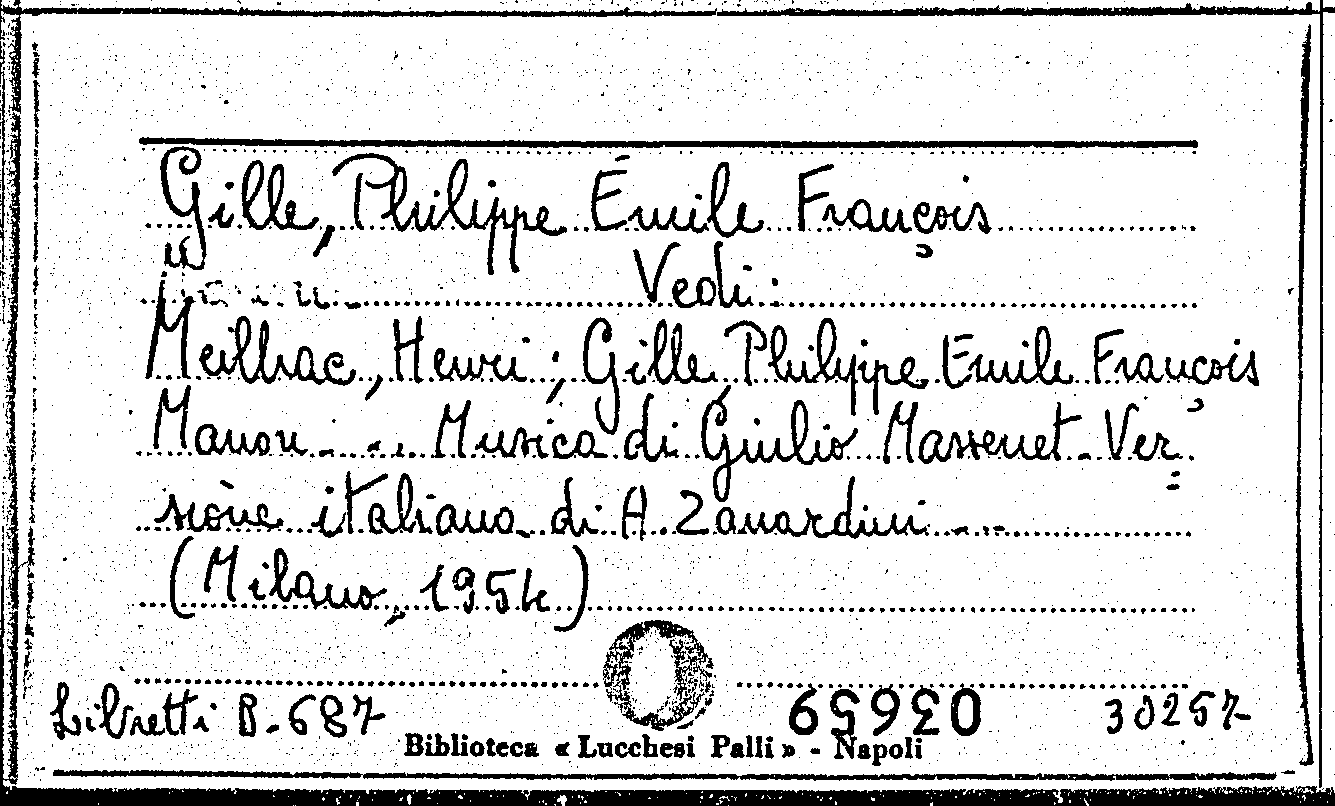 Gille, Philippe Émile François
Vedi:
Meilhac, Henri; Gille, Philippe Emile François
Manon - ... Musica di Giulio Massenet - Ver
sione italiana di A. Zanardini - ...
(Milano, 1954)
Libretti B. 687 30257
Biblioteca « Lucchesi Palli » - Napoli